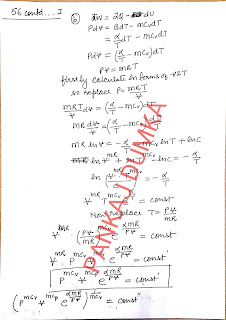 56 contd... I
(b) đW = đQ - dU
PdV = đdT - mCvdT
= α/T dT - mCvdT
PdV = (α/T - mCv)dT
PV = mRT
firstly calculate in terms of V & T
so replace P = mRT/V
mRT/V dV = (α/T - mCv)dT
mR dV/V = (α/T² - mCv/T)dT
mR lnV = -α/T - mCv lnT + lnC
mR lnV + mCv lnT - lnC = -α/T
ln = -α/T
V^mR T^mCv e^α/T = const
Now replace T = PV/mR
V^mR (PV/mR)^mCv e^αmR/PV = const
V^mR P^mCv V^mCv e^αmR/PV = const
P^mCv V^mCp e^αmR/PV = const
(P^mCv V^mCp e^αmR/PV)^1/mCv = const
PANKAJ DUMKA